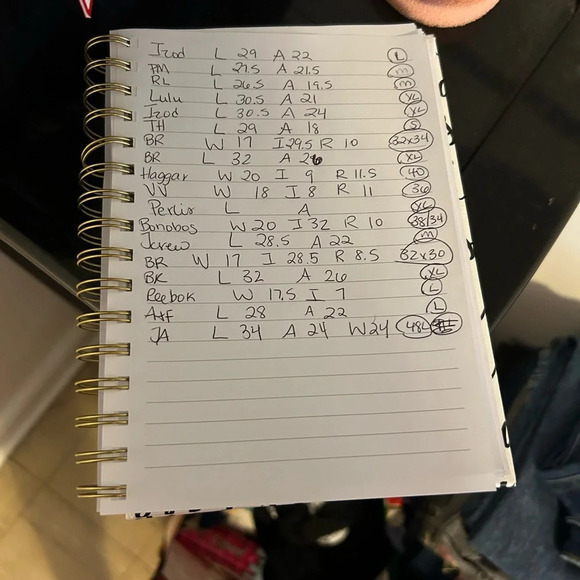 Izod L 29 A 22 L
PM L 27.5 A 21.5 m
RL L 26.5 A 19.5 m
Lulu L 30.5 A 21 XL
Izod L 30.5 A 24 XL
TH L 29 A 18 S
BR W 17 I 29.5 R 10 32x34
BR L 32 A 26 XL
Haggar W 20 I 9 R 11.5 40
VV W 18 I 8 R 11 36
Perlis L A XL
Bonobos W 20 I 32 R 10 38/34
Jcrew L 28.5 A 22 m
BR W 17 I 28.5 R 8.5 32x30
BR L 32 A 26 XL
Reebok W 17.5 I 7 L
A+F L 28 A 22 L
JA L 34 A 24 W24 48L